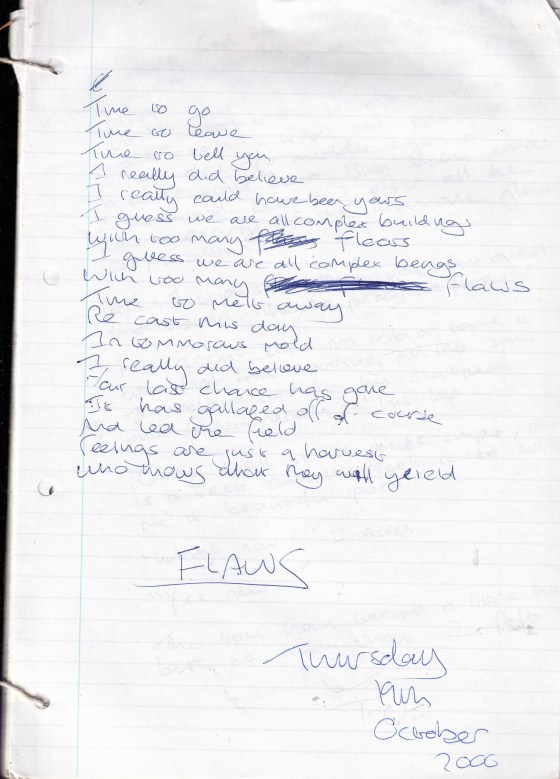 Time to go
Time to leave
Time to tell you
I really did believe
I really could have been yours
I guess we are all complex buildings
With too many floors
I guess we are all complex beings
With too many flaws
Time to melt away
Re cast this day
In tommoraws mold
I really did believe
Our last chance has gone
It has galloped off of course
And led the field
Feelings are just a harvest
Who knows what they will yeield
FLAWS
Thursday
19th
October
2006